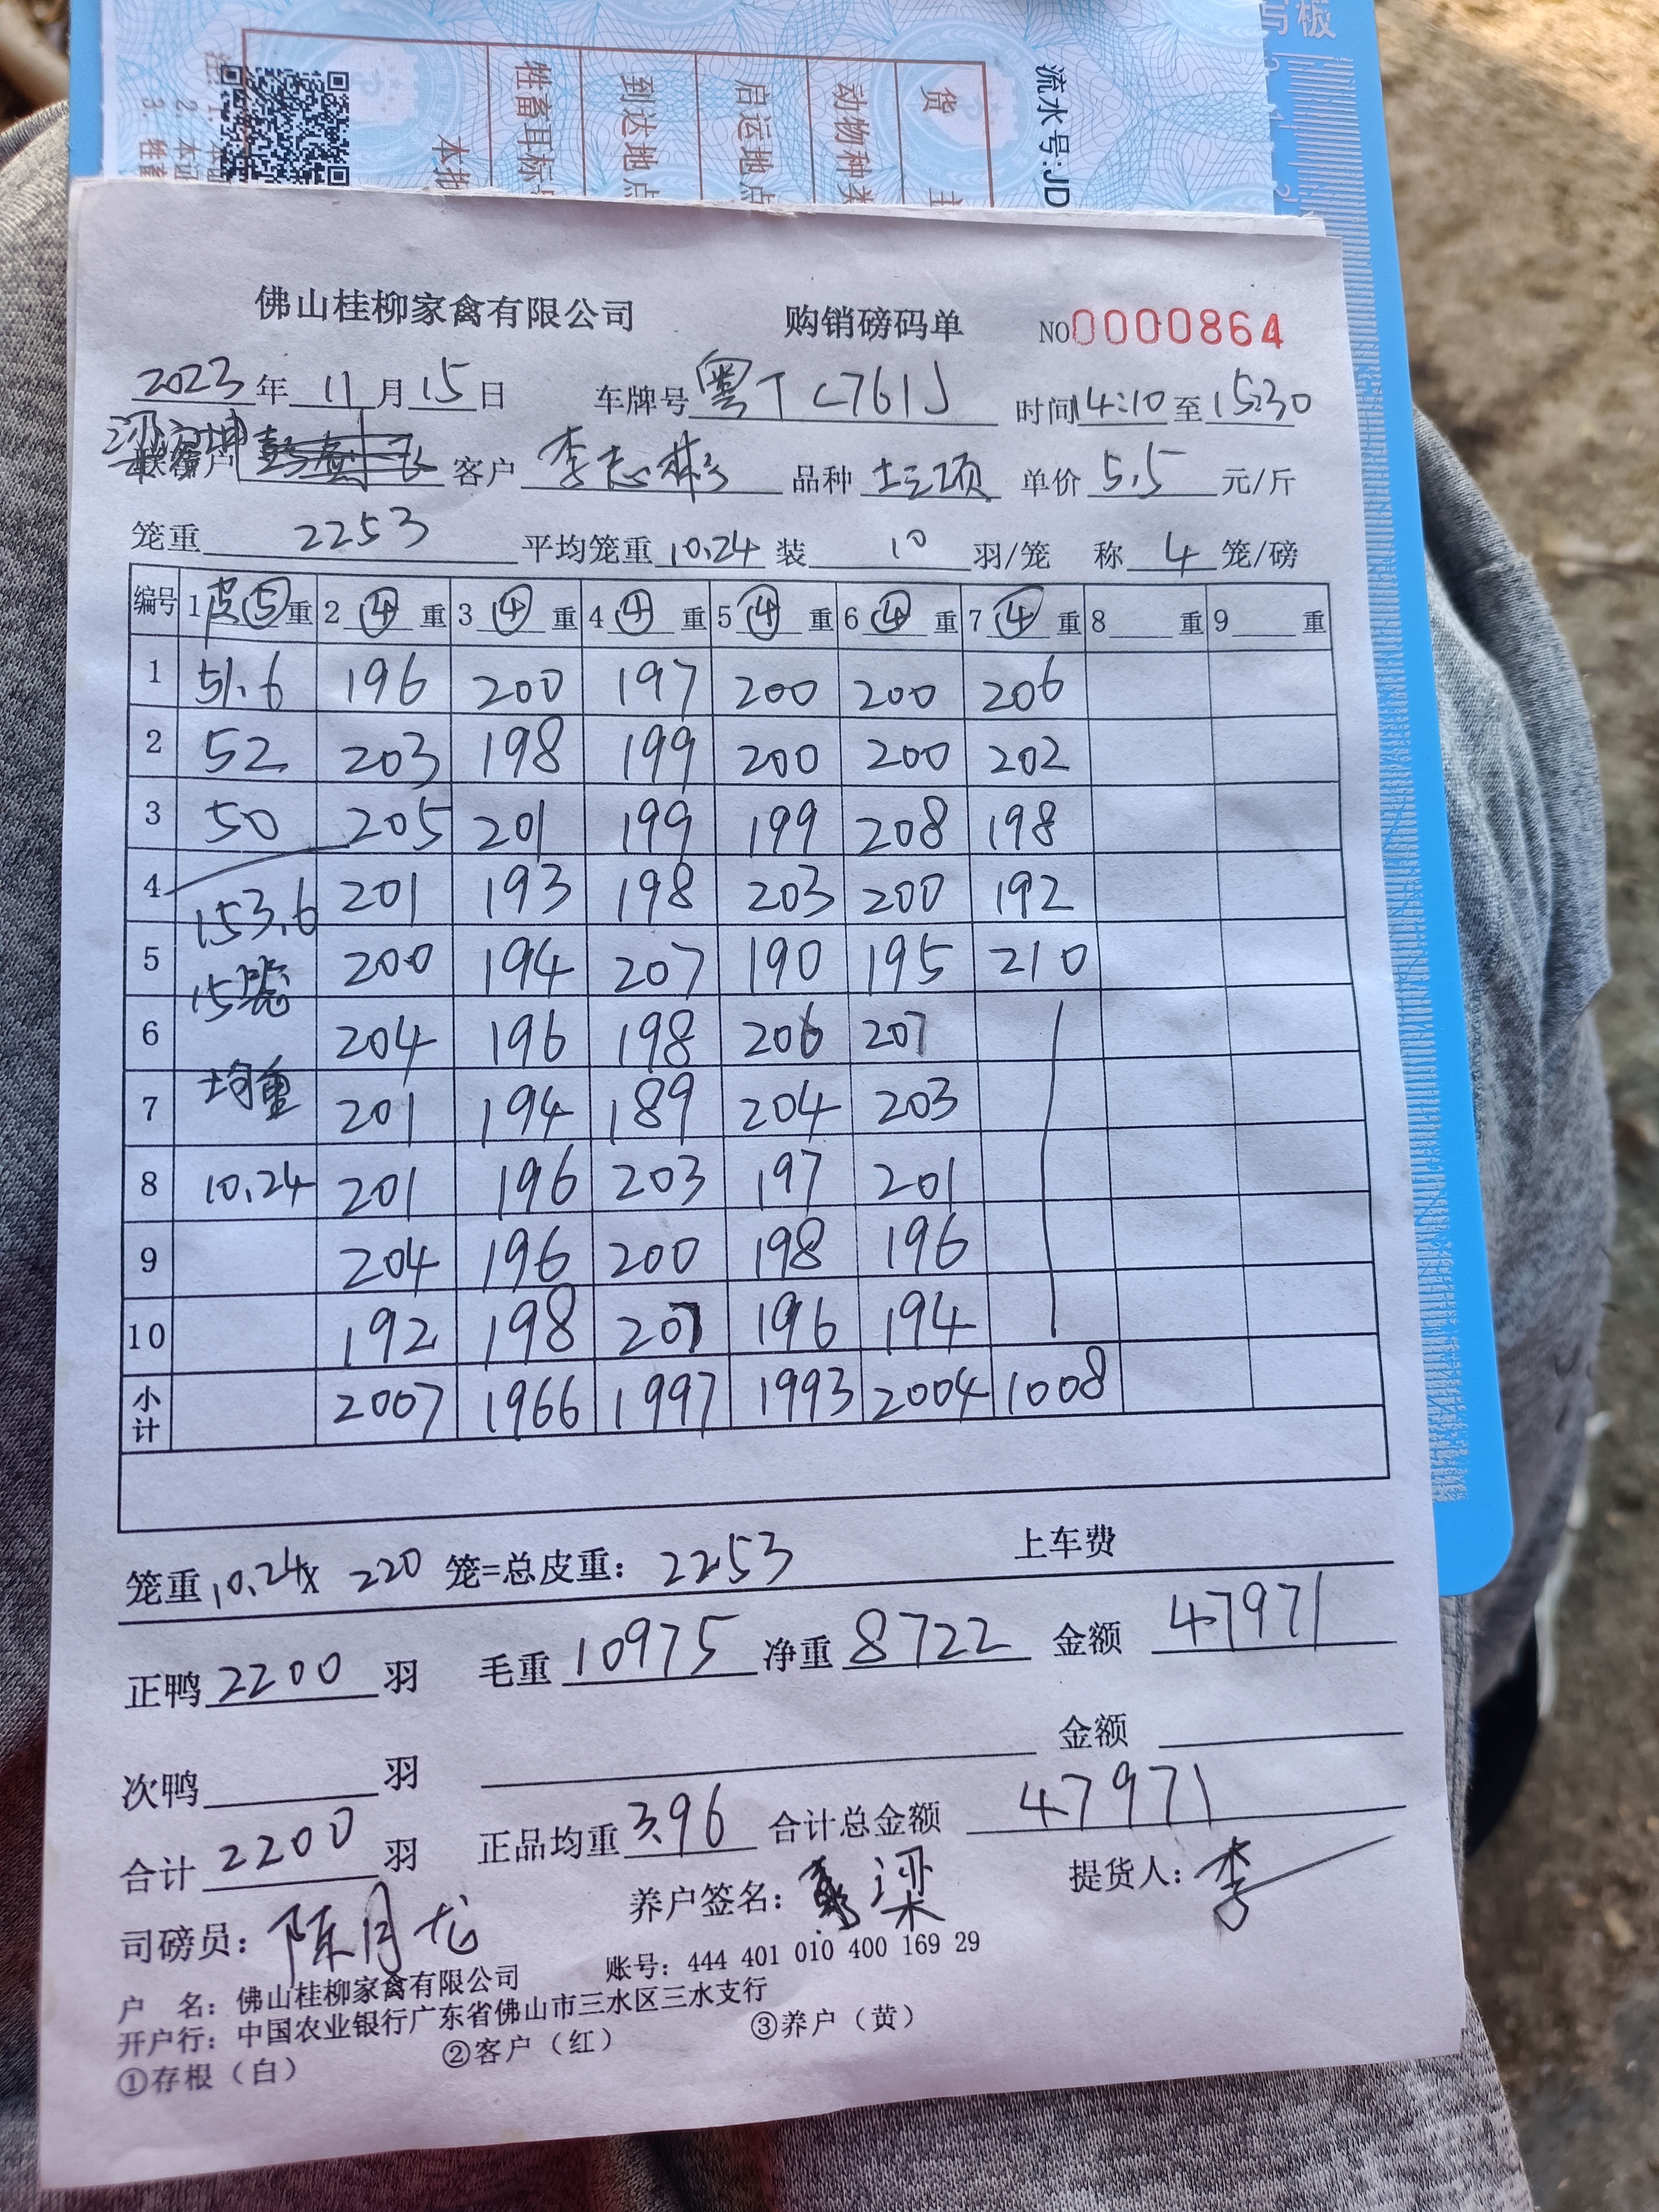 写板
流水号:JD
货 主
动物种类
启运地点
到达地点
牲畜耳标号
本批
佛山桂柳家禽有限公司 购销磅码单 NO0000864
2023年 11月15日 车牌号 粤TC761J 时间14:10至15:30
客户 李志彬 品种 土三项 单价 5.5 元/斤
笼重 2253 平均笼重 10.24 装 10 羽/笼 称 4 笼/磅
编号 1皮⑤重 2④重 3④重 4④重 5④重 6④重 7④重 8重 9重
1 51.6 196 200 197 200 200 206
2 52 203 198 199 200 200 202
3 50 205 201 199 199 208 198
4 153.6 201 193 198 203 200 192
5 15笼 200 194 207 190 195 210
6 204 196 198 206 207
7 均重 201 194 189 204 203
8 10.24 201 196 203 197 201
9 204 196 200 198 196
10 192 198 207 196 194
小计 2007 1966 1997 1993 2004 1008
笼重10.24x 220 笼=总皮重: 2253 上车费
正鸭2200羽 毛重10975 净重8722 金额 47971
次鸭 羽 金额
合计2200羽 正品均重3.96 合计总金额 47971
司磅员: 陈月龙 养户签名: 梁 提货人: 李
户 名: 佛山桂柳家禽有限公司 账号: 444 401 010 400 169 29
开户行: 中国农业银行广东省佛山市三水区三水支行
①存根(白) ②客户(红) ③养户(黄)